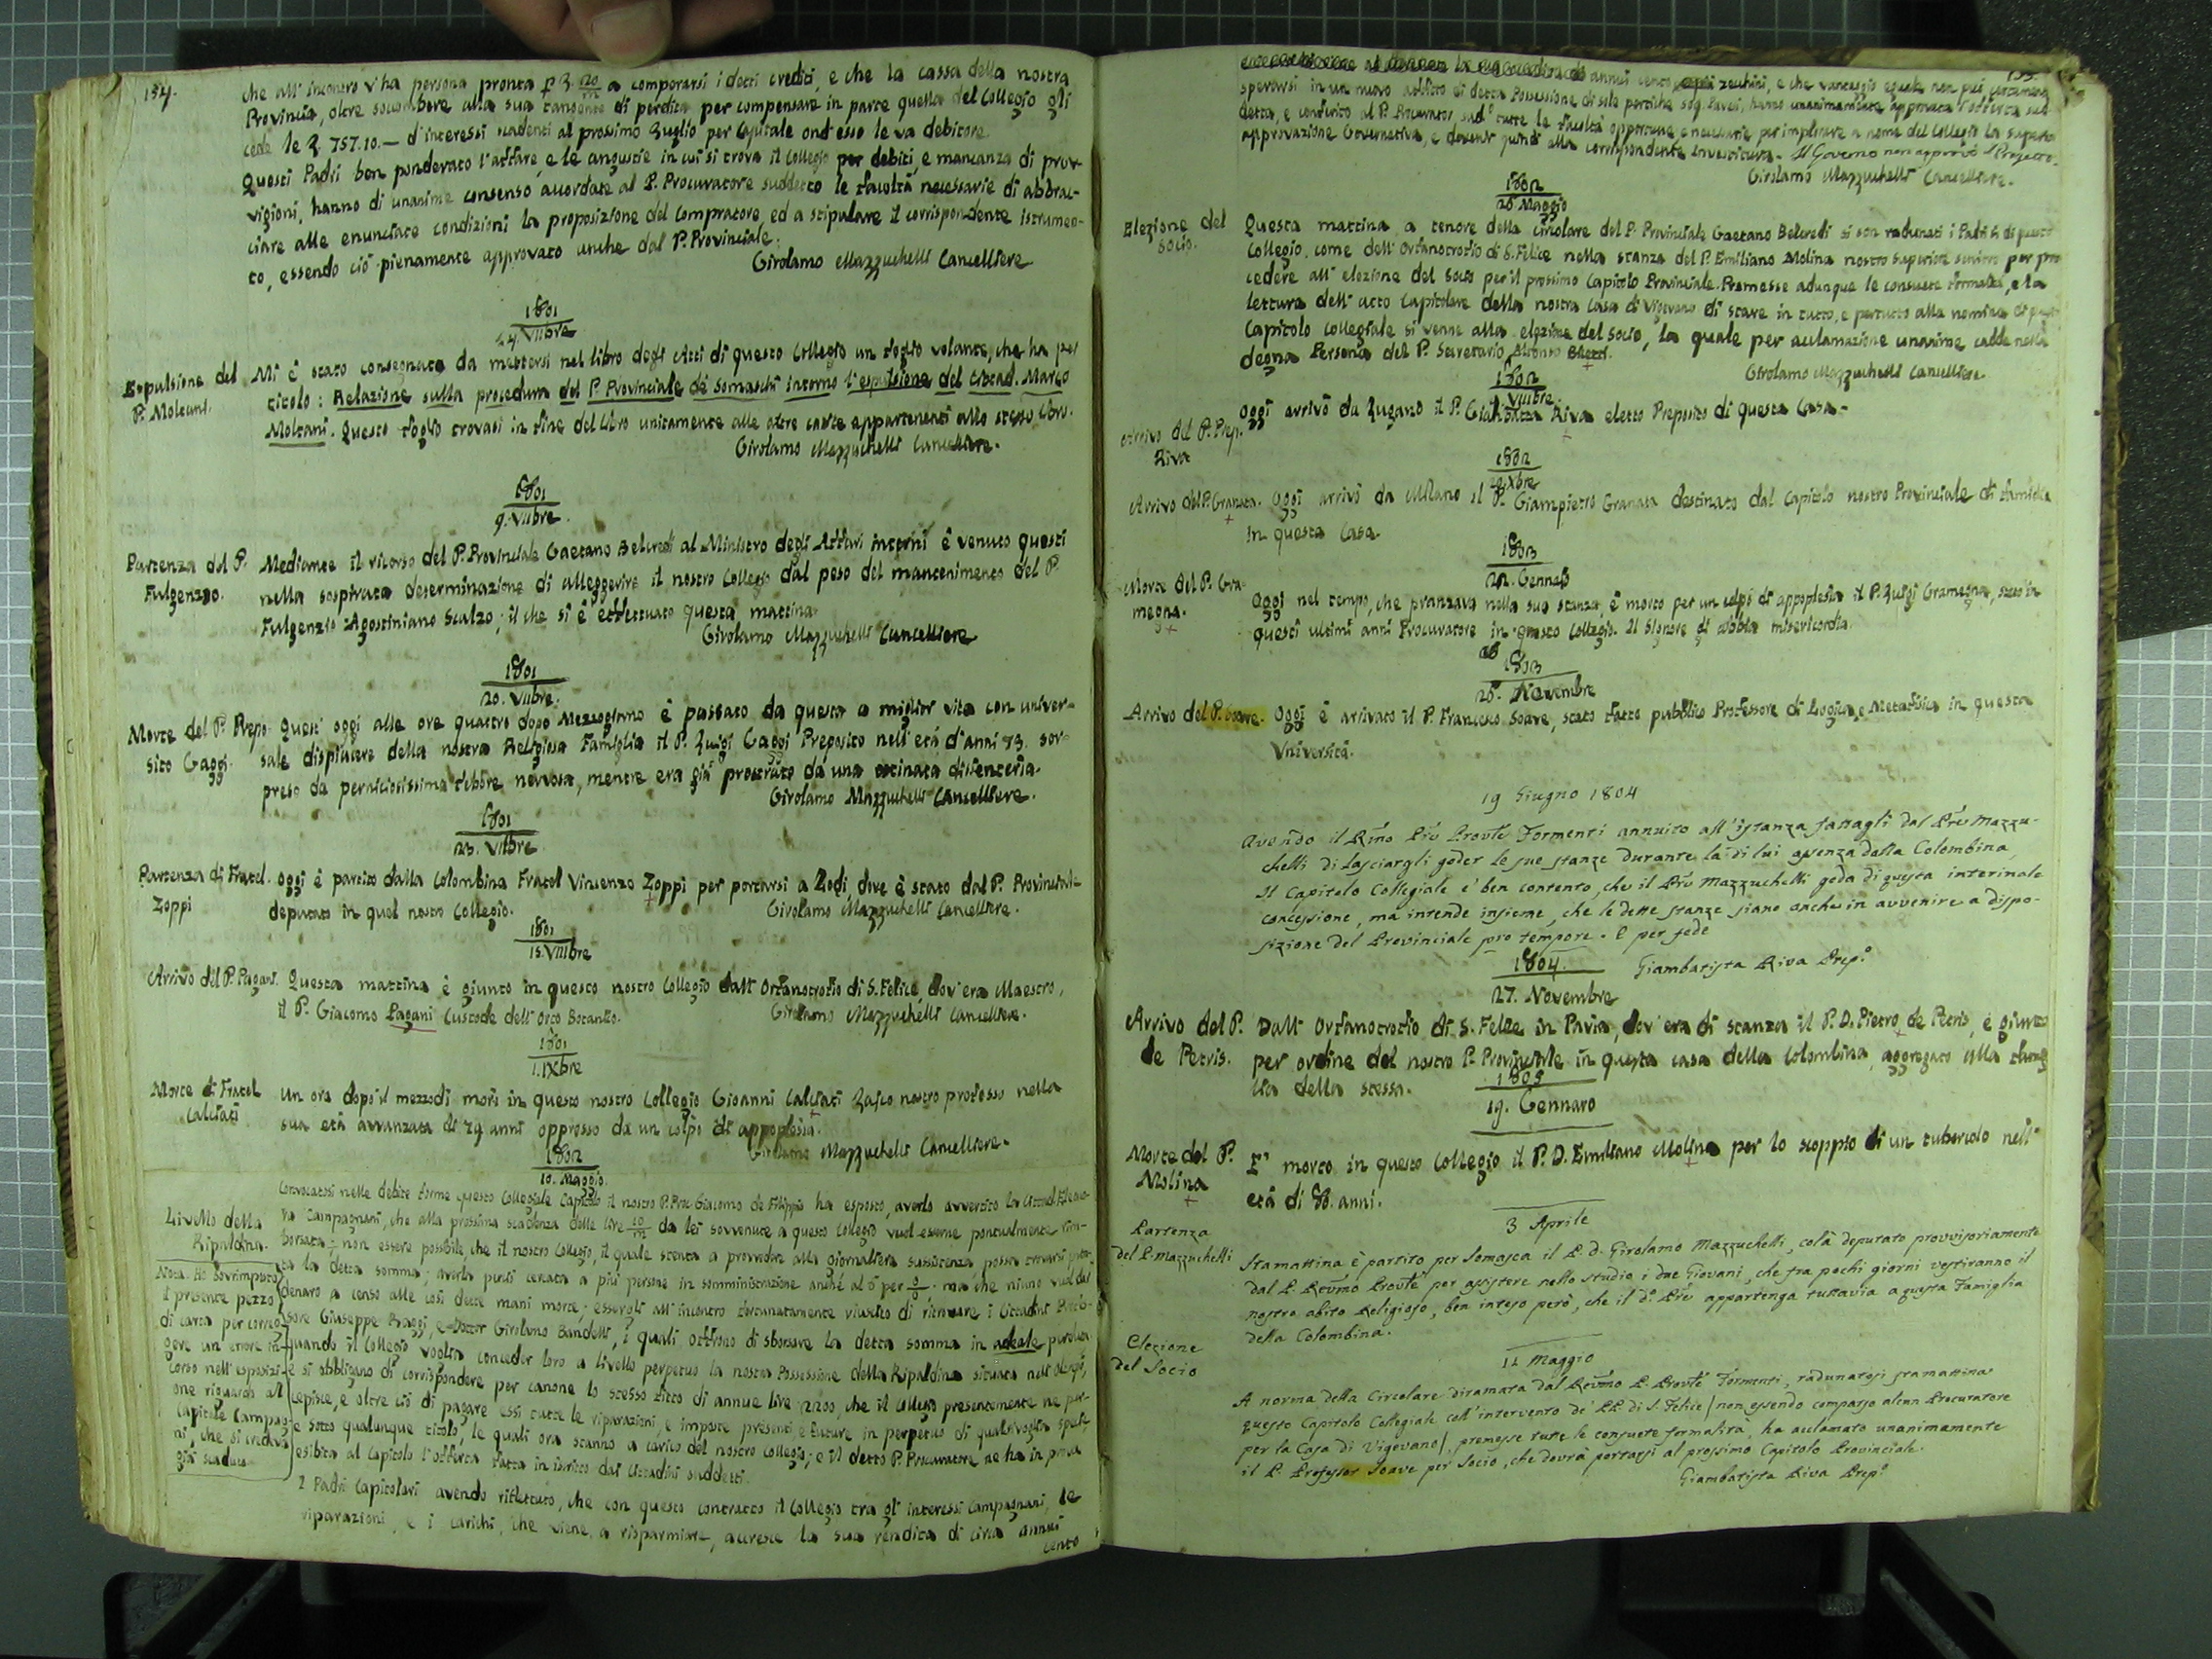 134.
che all'incontro v'ha persona pronta a comporarsi i detti crediti, e che la cassa della nostra
Provincia, oltre soccombere alla sua tangente di perdita per compensare in parte quella del Collegio gli
cede le 757.10.— d'interessi scadenti al prossimo Luglio per Capitale ond'esso le va debitore.
Questi Padri ben ponderato l'affare, e le angustie in cui si trova il Collegio per debiti, e mancanza di prov-
vigioni, hanno di unanime consenso accordate al P. Procuratore suddetto le facoltà necessarie di abbrac-
ciare alle enunciate condizioni la proposizione del Compratore, ed a stipulare il corrispondente istrumen-
to, essendo ciò pienamente approvato anche dal P. Provinciale.
Girolamo Mazzuchelli Cancelliere
1801
Viibre
Espulsione del P. Moltani.
Mi è stato consegnato da mettersi nel libro degli Atti di questo Collegio un foglio volante, che ha per
titolo: Relazione sulla procedura del P. Provinciale de' Somaschi intorno l'espulsione del Cittad. Marco
Moltani. Questo foglio trovasi in fine del libro unitamente alle altre carte appartenenti allo stesso libro.
Girolamo Mazzuchelli Cancelliere.
1801
9. Viibre.
Partenza del P. Fulgenzio.
Mediante il ricorso del P. Provinciale Gaetano Belcredi al Ministro degli Affari interni è venuto questi
nella sospirata determinazione di alleggerire il nostro Collegio dal peso del mantenimento del P.
Fulgenzio Agostiniano Scalzo; il che si è effettuato questa mattina.
Girolamo Mazzuchelli Cancelliere
1801
20. Viibre.
Morte del P. Preposito Gaggi.
Quest'oggi alle ore quattro dopo Mezzogiorno è passato da questa a miglior vita con univer-
sale dispiacere della nostra Religiosa Famiglia il P. Luigi Gaggi Preposito nell'età d'anni 73. sor-
preso da perniciosissima febbre nervosa, mentre era già prostrato da una ostinata dissenteria.
Girolamo Mazzuchelli Cancelliere.
1801
23. Viibre.
Partenza di Fratel. Zoppi
Oggi è partito dalla Colombina Fratel Vincenzo Zoppi per portarsi a Lodi, dove è stato dal P. Provinciale
deputato in quel nostro Collegio.
Girolamo Mazzuchelli Cancelliere.
1801
15. Viiibre
Arrivo del P. Pagani.
Questa mattina è giunto in questo nostro Collegio dall'Orfanotrofio di S. Felice, dov'era Maestro,
il P. Giacomo Pagani Custode dell'Orto Botanico.
Girolamo Mazzuchelli Cancelliere.
1801
1. IXbre
Morte di Fratel Calciati
Un ora dopo il mezzodì morì in questo nostro Collegio Gioanni Calciati Laico nostro professo nella
sua età avvanzata di 79 anni oppresso da un colpo di appoplesia.
Girolamo Mazzuchelli Cancelliere.
1802
10. Maggio.
Livello della Ripaldina.
Convocatosi nelle debite forme questo Collegiale Capitolo il nostro P. Giacomo de Filippis ha esposto, averlo avvertito la
Campagnani, che alla prossima scadenza delle lire da lei sovvenute a questo Collegio vuol esserne pontualmente rim-
borsata: non essere possibile, che il nostro Collegio, il quale stenta a provvedere alla giornaliera sussistenza, possa trovarsi
la detta somma; averla perciò cercata a più persone in somministrazione anche al 5 per, ma che niuno vuol dar
denaro a censo alle così dette mani morte; essergli all'incontro fortunatamente riuscito di ritrovare i Cittadini
Giuseppe Braggi, e Dottor Girolamo Bandelli, i quali offrono di sborsare la detta somma
quando il Collegio voglia conceder loro a livello perpetuo la nostra Possessione della Ripaldina situata nell'
e si obbligano di corrispondere per canone lo stesso fitto di annue lire 2200, che il Collegio presentemente ne per-
cepisce, e oltre ciò di pagare essi tutte le riparazioni, e imposte presenti e future in perpetuo di qualsivoglia specie
e sotto qualunque titolo, le quali ora stanno a carico del nostro Collegio; e il detto P. Procuratore ne ha in prova
esibita al Capitolo l'offerta fatta in iscritto dai Cittadini suddetti.
Nota. Ho sovrimposto
il presente pezzo
di carta per correg-
gere un errore in-
corso nell'esposizi-
one riguardo al
Capitale Campagna-
ni, che si credeva
già scaduto
I Padri Capitolari avendo riflettuto, che con questo contratto il Collegio tra gl'interessi Campagnani, le
riparazioni, e i carichi, che viene a risparmiare, accresce la sua rendita di circa annui
cento
annui cento zecchini, e che vantaggio eguale non può
sperarsi in un nuovo affitto di detta Possessione di sole pertiche 309. Pavesi, hanno unanimamente approvata l'offerta sud-
detta, e conferito al P. Procurator sud.o tutte le facoltà opportune e necessarie per implorare a nome del Collegio la superior
approvazione Governativa, e devenir quindi alla corrispondente Investitura. Il Governo non approvò il Progetto.
Girolamo Mazzuchelli Cancelliere.
1802
25. Maggio
Elezione del Socio.
Questa mattina a tenore della Circolare del P. Provinciale Gaetano Belcredi si son radunati i Padri sì di questo
Collegio, come dell'Orfanotrofio di S. Felice nella stanza del P. Emiliano Molina nostro Superiore per pro-
cedere all'elezione del Socio per il prossimo Capitolo Provinciale. Premesse adunque le consuete formalità, e la
lettura dell'atto Capitolare della nostra Casa di Vigevano di stare in tutto, e pertutto alla nomina di questo
Capitolo Collegiale si venne alla elezione del Socio, la quale per acclamazione unanime cadde nella
degna Persona del P. Secretario
Girolamo Mazzuchelli Cancelliere
1802
Viiibre.
Arrivo del P. Prep. Riva
Oggi arrivò da Lugano il P. Giambatta Riva eletto Preposito di questa Casa.
1802
IXbre
Arrivo del P. Granata.
Oggi arrivò da Milano il P. Giampietro Granata destinato dal Capitolo nostro Provinciale di famiglia
in questa Casa.
1803
22. Gennajo
Morte del P. Gramegna.
Oggi nel tempo, che pranzava nella sua stanza, è morto per un colpo di appoplesia il P. Luigi Gramegna, stato in
questi ultimi anni Procuratore in questo Collegio. Il Signore gli abbia misericordia.
1803
25. Novembre
Arrivo del P. Soave.
Oggi è arrivato il P. Francesco Soave, stato fatto pubblico Professore di Logica, e Metafisica in questa
Università.
19 Giugno 1804
Avendo il Rmo Pre Provle Formenti annuito all'istanza fattagli dal Pre Mazzu-
chelli di lasciargli goder le sue stanze durante la di lui assenza dalla Colombina,
Il Capitolo Collegiale è ben contento, che il Pre Mazzuchelli goda di questa interinale
concessione, ma intende insieme, che le dette stanze siano anche in avvenire a dispo-
sizione del Provinciale pro tempore. E per fede
Giambatista Riva Prep.o
1804.
27. Novembre
Arrivo del P. de Petris.
Dall'Orfanotrofio di S. Felice in Pavia, dov'era di stanza il P. D. Pietro de Petris, è giunto
per ordine del nostro P. Provinciale in questa casa della Colombina, aggregato alla fami-
lia della stessa.
1805
19. Gennaro
Morte del P. Molina
E' morto in questo Collegio il P. D. Emiliano Molina per lo scoppio di un tubercolo nell'
età di 80. anni.
3 Aprile
Partenza del P. Mazzuchelli
Stamattina è partito per Somasca il P. D. Girolamo Mazzuchelli, colà deputato provvisoriamente
dal P. Revmo Provle per assistere nello studio i due Giovani, che fra pochi giorni vestiranno il
nostro abito Religioso, ben inteso però, che il do Pre appartenga tuttavia a questa Famiglia
della Colombina.
11 Maggio
Elezione del Socio
A norma della Circolare diramata dal Revmo P. Provle Formenti, radunatosi stamattina
questo Capitolo Collegiale coll'intervento de' PP. di S. Felice / non essendo comparso alcun Procuratore
per la Casa di Vigevano /, premesse tutte le consuete formalità, ha acclamato unanimamente
il P. Professor Soave per Socio, che dovrà portarsi al prossimo Capitolo Provinciale.
Giambatista Riva Prep.o